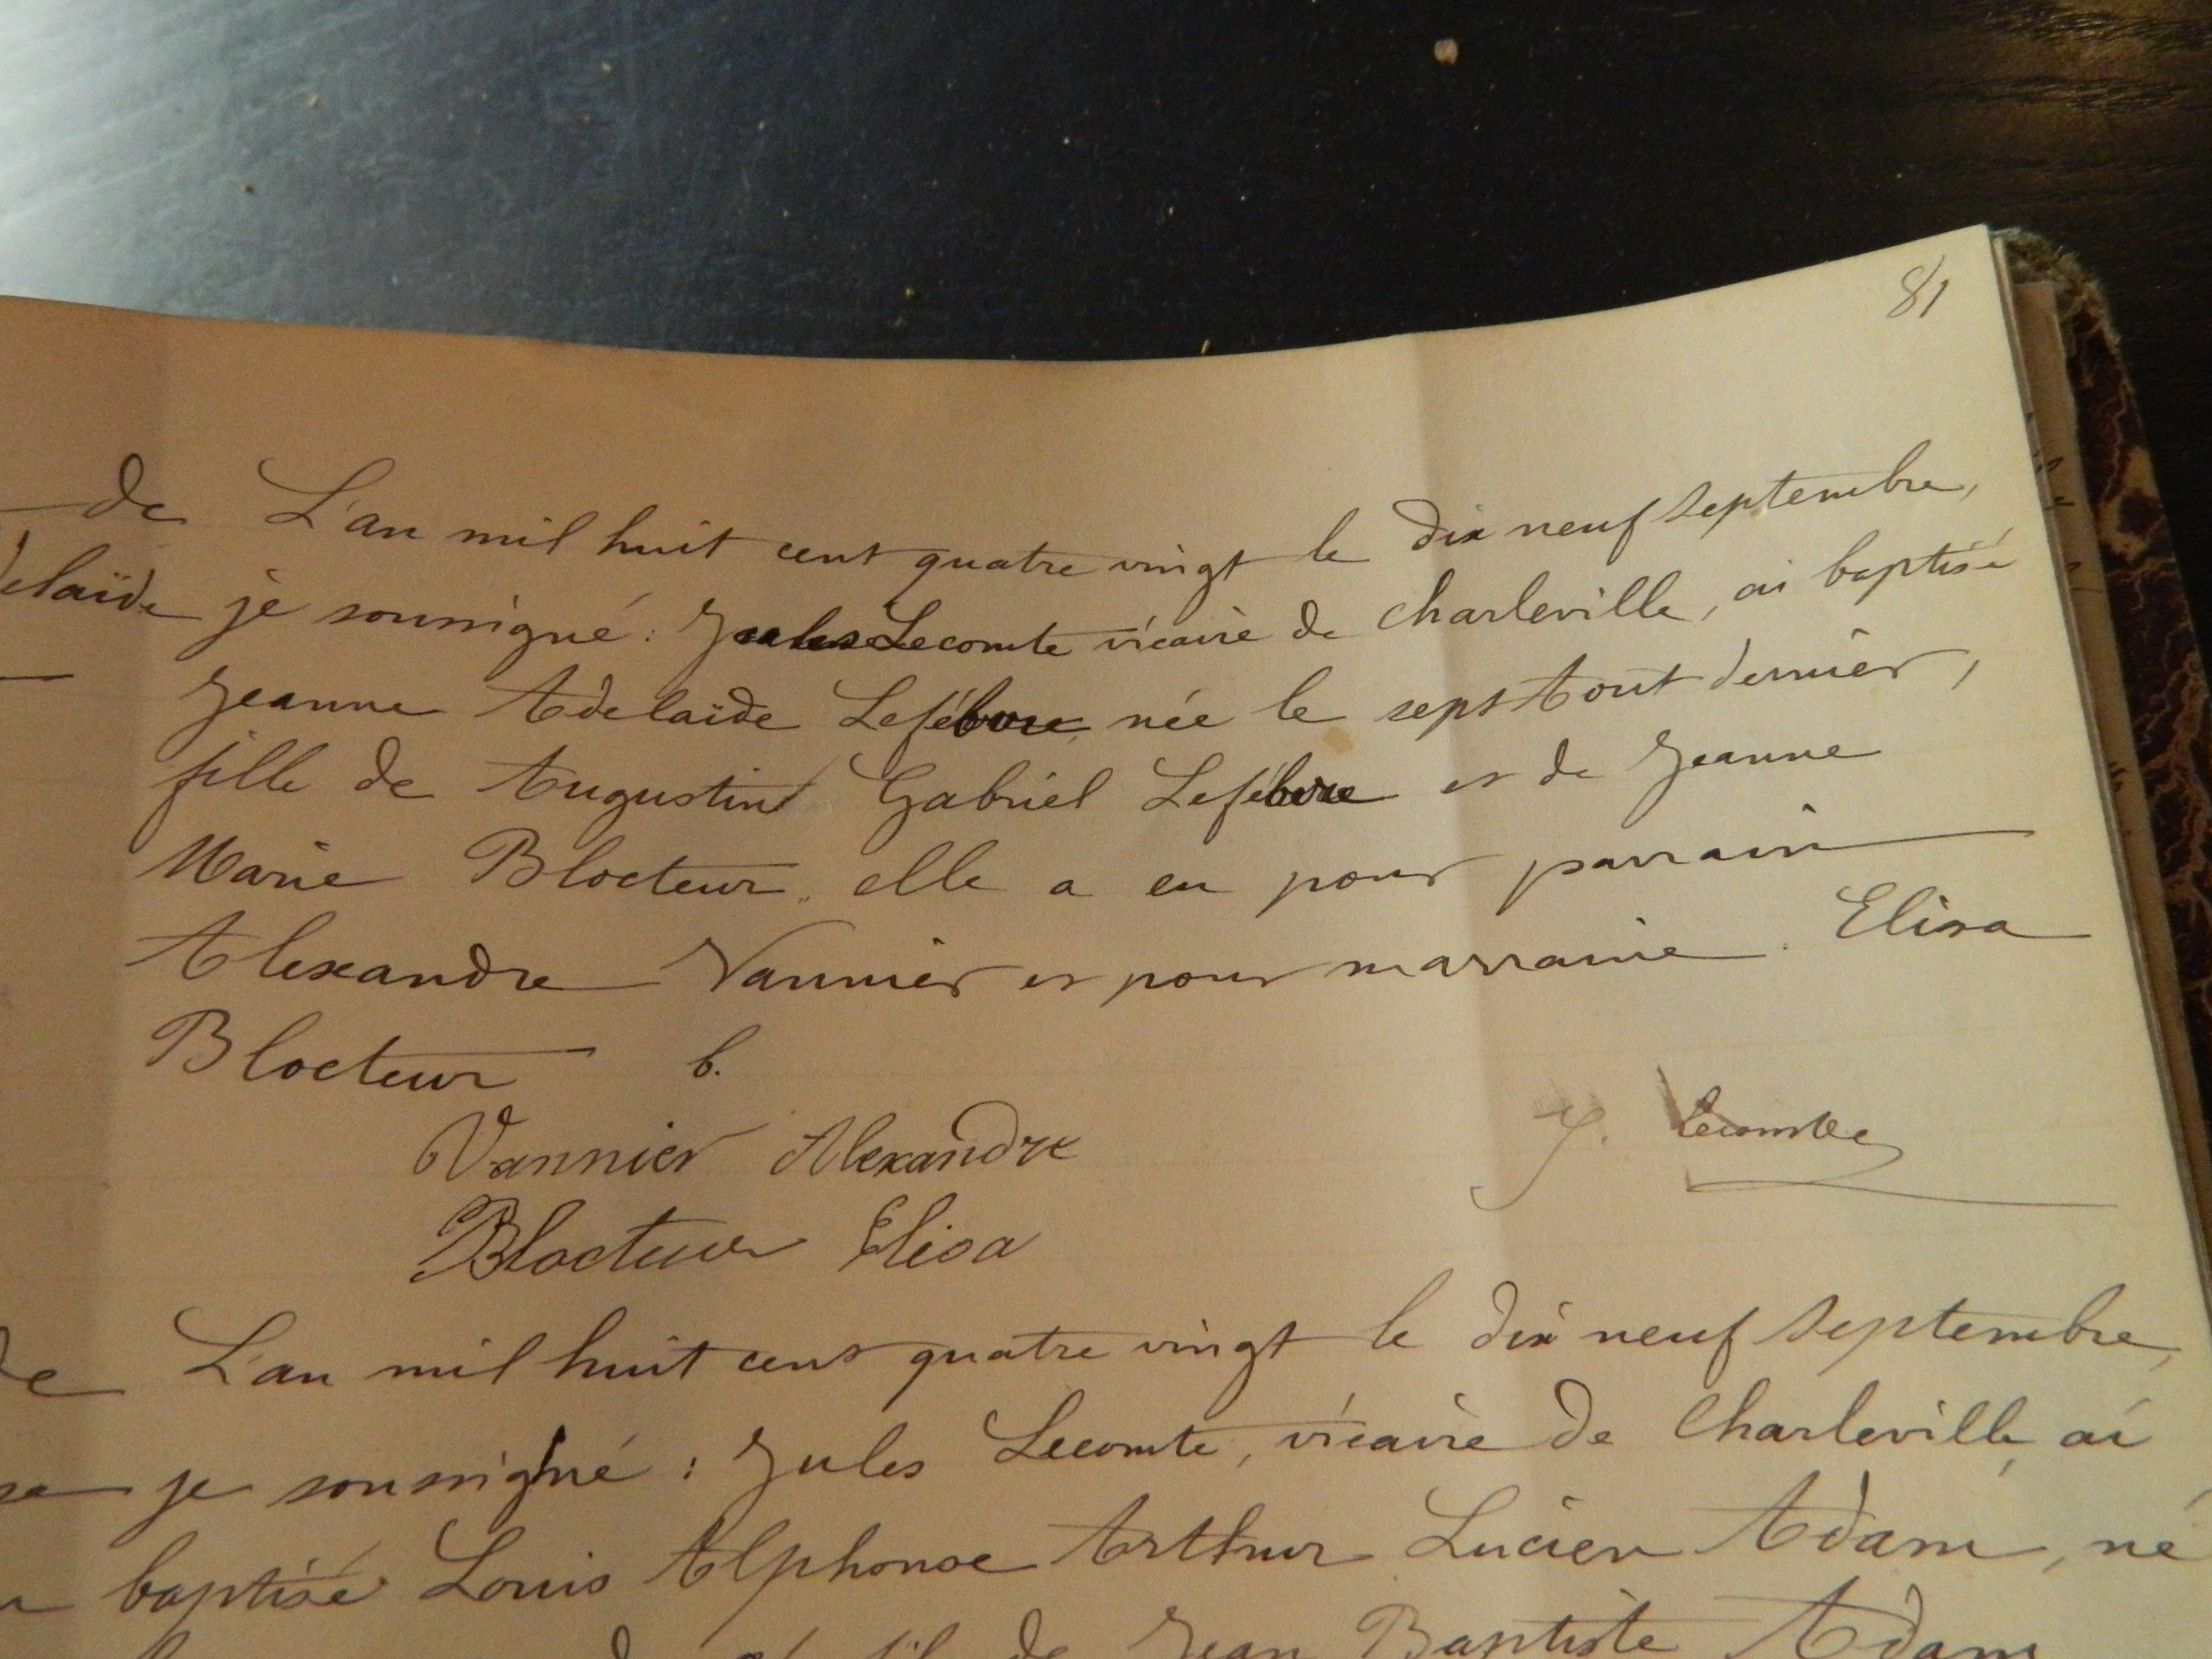 81
de L'an mil huit cent quatre vingt le dix neuf septembre,
delaïde je soussigné : Jules Lecomte vicaire de Charleville, ai baptisé
Jeanne Adelaïde Lefébvre née le sept Aout dernier,
fille de Augustin Gabriel Lefébvre et de Jeanne
Marie Blocteur. elle a eu pour parrain
Alexandre Vannier et pour marraine Elisa
Blocteur b.
Vannier Alexandre
J. Lecomte
Blocteur Elisa
de L'an mil huit cent quatre vingt le dix neuf septembre,
je soussigné : Jules Lecomte, vicaire de Charleville, ai
baptisé Louis Alphonse Arthur Lucien Adam, né
fil de Jean Baptiste Adam